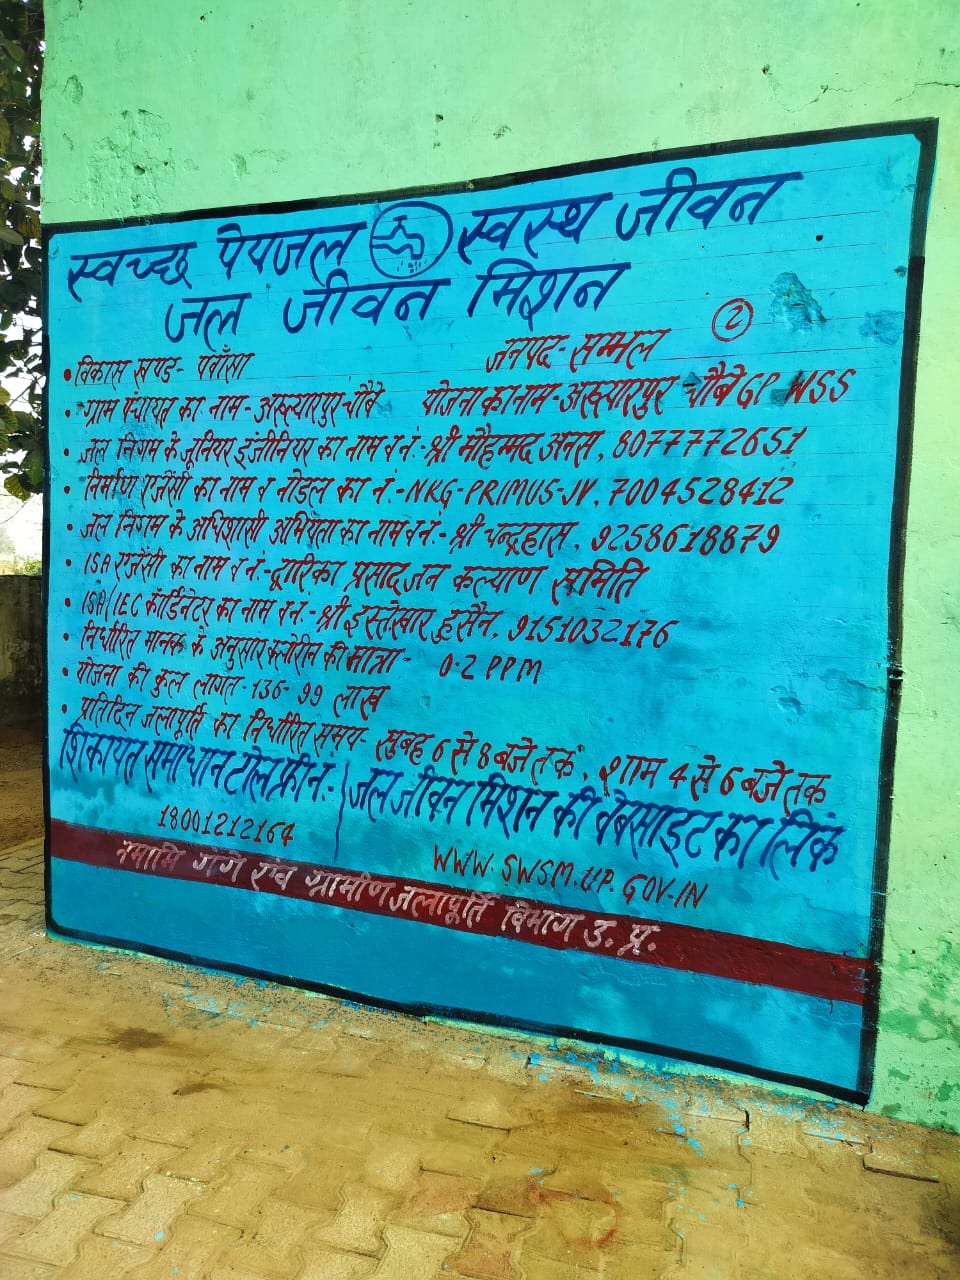 स्वच्छ पेयजल स्वस्थ जीवन
जल जीवन मिशन
2
• विकास खण्ड - पवाँसा जनपद - सम्भल
• ग्राम पंचायत का नाम - अख्त्यारपुर चौबे योजना का नाम - अख्त्यारपुर चौबे GP WSS
• जल निगम के जूनियर इंजीनियर का नाम व नं. - श्री मौहम्मद अनस, 8077772651
• निर्माण एजेंसी का नाम व नोडल का नं. - NKG-PRIMUS-JV, 7004528412
• जल निगम के अधिशासी अभियंता का नाम व नं. - श्री चन्द्रहास, 9258618879
• ISA एजेंसी का नाम व नं. - द्वारिका प्रसाद जन कल्याण समिति
• ISA/IEC कॉर्डिनेटर का नाम व नं. - श्री इस्तेखार हुसैन, 9151032176
• निर्धारित मानक के अनुसार क्लोरीन की मात्रा - 0.2 PPM
• योजना की कुल लागत - 136-99 लाख
• प्रतिदिन जलापूर्ति का निर्धारित समय - सुबह 6 से 8 बजे तक, शाम 4 से 6 बजे तक
शिकायत समाधान टोल फ्री नं. - जल जीवन मिशन की वेबसाइट का लिंक
18001212164 WWW.SWSM.UP.GOV.IN
नमामि गंगे एंव ग्रामीण जलापूर्ति विभाग उ. प्र.